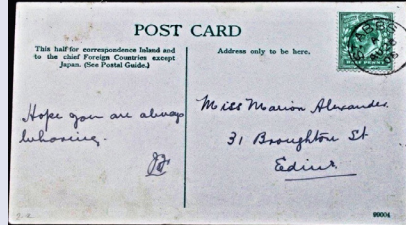 POST CARD
This half for correspondence Inland and
to the chief Foreign Countries except
Japan. (See Postal Guide.)
Address only to be here.
Hope you are always
behaving.
Miss Marion Alexander
31 Broughton St
Edinr
99004